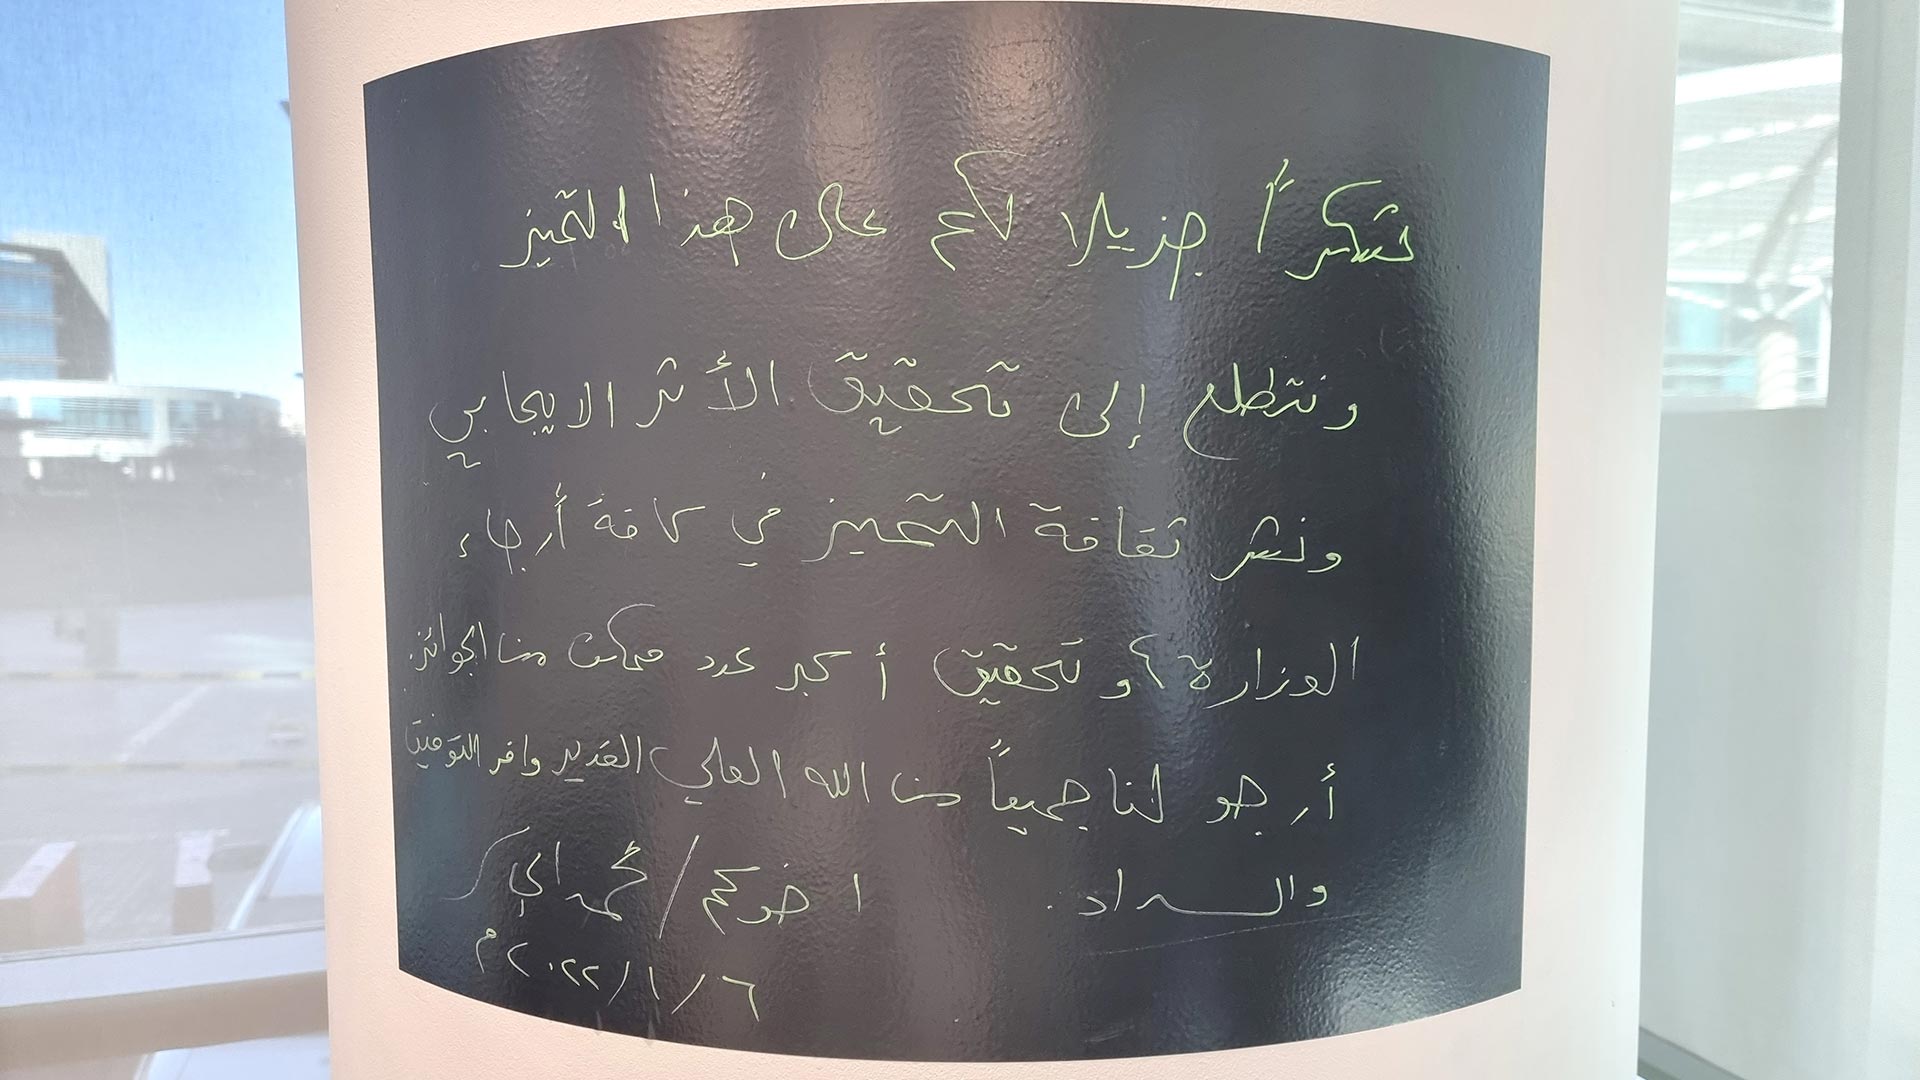 شكراً جزيلا لكم على هذا التميز
ونتطلع إلى تحقيق الأثر الايجابي
ونشر ثقافة التميز في كافة أرجاء
الوزارة، وتحقيق أكبر عدد ممكن من الجوائز.
أرجو لنا جميعاً من الله العلي القدير وافر التوفيق
والسداد.
اخوكم/ محمد
٦/١/٢٠٢٢م